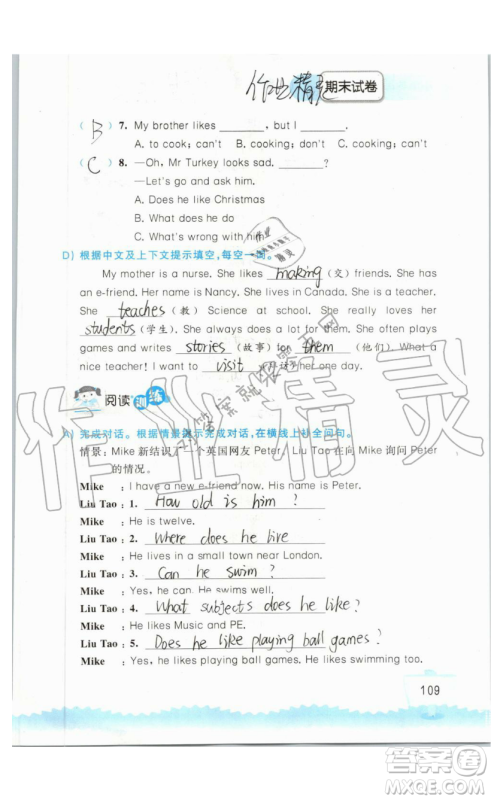 作业精灵 期末试卷
( B ) 7. My brother likes ________, but I ________.
A. to cook; can't B. cooking; don't C. cooking; can't
( C ) 8. —Oh, Mr Turkey looks sad. ________?
—Let's go and ask him.
A. Does he like Christmas
B. What does he do
C. What's wrong with him
D) 根据中文及上下文提示填空,每空一词。
My mother is a nurse. She likes making (交) friends. She has
an e-friend. Her name is Nancy. She lives in Canada. She is a teacher.
She teaches (教) Science at school. She really loves her
students (学生). She always cares about them. She often plays
games and writes stories (故事) for them (他们). What a
nice teacher! I want to visit her one day.
阅读训练
A) 完成对话。根据情景提示完成对话,在横线上补全问句。
情景:Mike 新结识了一个英国网友 Peter, Liu Tao 在向 Mike 询问 Peter
的情况。
Mike : I have a new e-friend now. His name is Peter.
Liu Tao : 1. How old is him?
Mike : He is twelve.
Liu Tao : 2. Where does he live
Mike : He lives in a small town near London.
Liu Tao : 3. Can he swim?
Mike : Yes, he can. He swims well.
Liu Tao : 4. What subjects does he like?
Mike : He likes Music and PE.
Liu Tao : 5. Does he like playing ball games?
Mike : Yes, he likes playing ball games. He likes swimming too.
109
作业精灵
答案圈
MXQE.COM